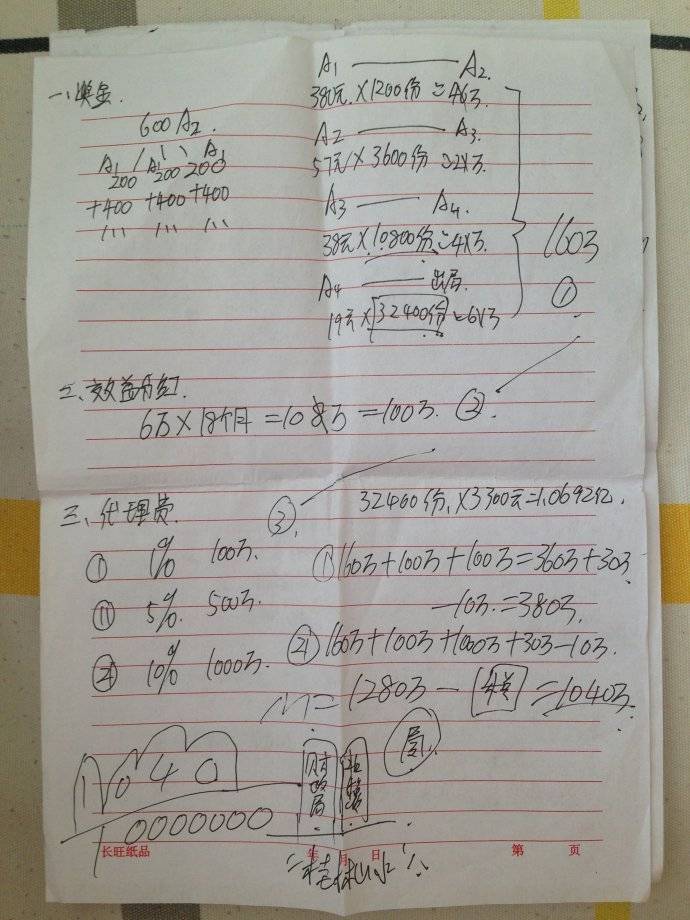 一、奖金.
600 A2.
A1 A1 A1
200 200 200
+400 +400 +400
A1 —— A2.
380元 × 1200份 ≈ 46万.
A2 —— A3.
57元 × 3600份 ≈ 21万.
A3 —— A4.
38元 × 10800份 ≈ 41万.
A4 —— 出局.
19元 × 32400份 ≈ 61万
160万
①
二、效益分红.
6万 × 18个月 = 108万 = 100万. ②.
三、代理费. ③.
① 1% 100万.
⑪ 5% 500万.
㉑ 10% 1000万.
32400份 × 3300元 = 1.0692亿.
① 160万 + 100万 + 100万 = 360万 + 30万
- 10万 = 380万.
㉑ 160万 + 100万 + 1000万 + 30万 - 10万.
= 1280万 - 税 = 1040万.
1040
10000000
财政局
局.
长旺纸品 年 月 日 第 页
“桂林山水”